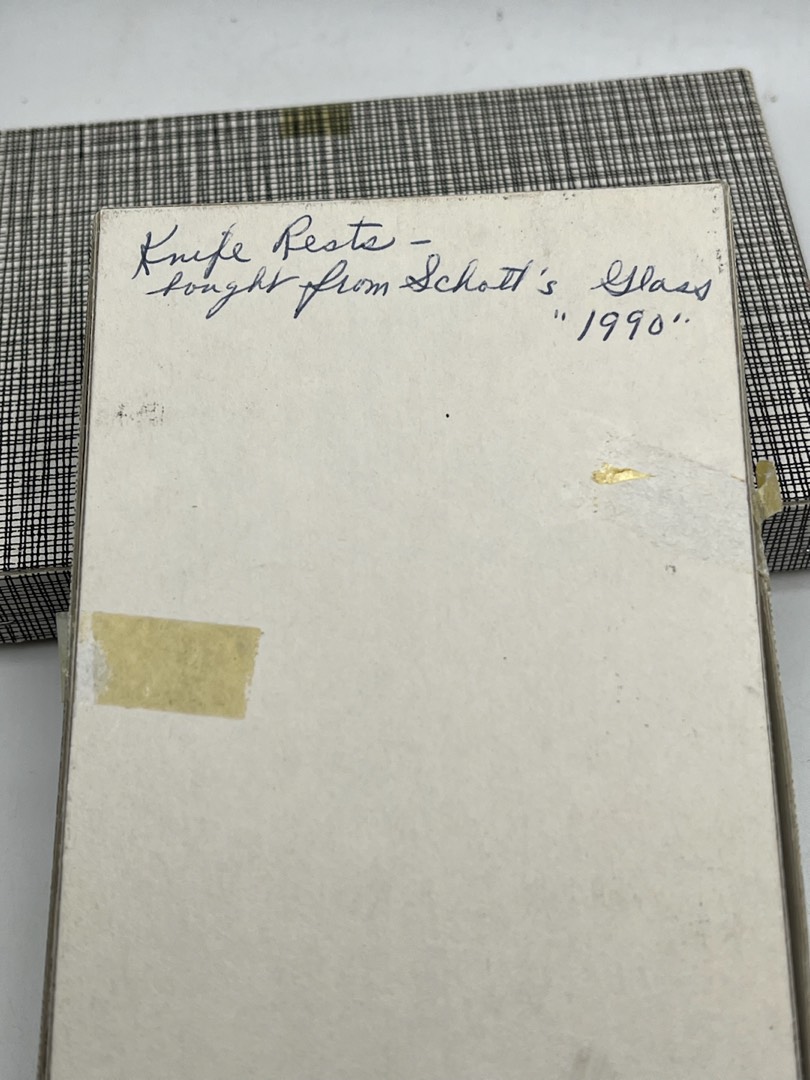 Knife Rests -
bought from Schott's Glass
"1990"